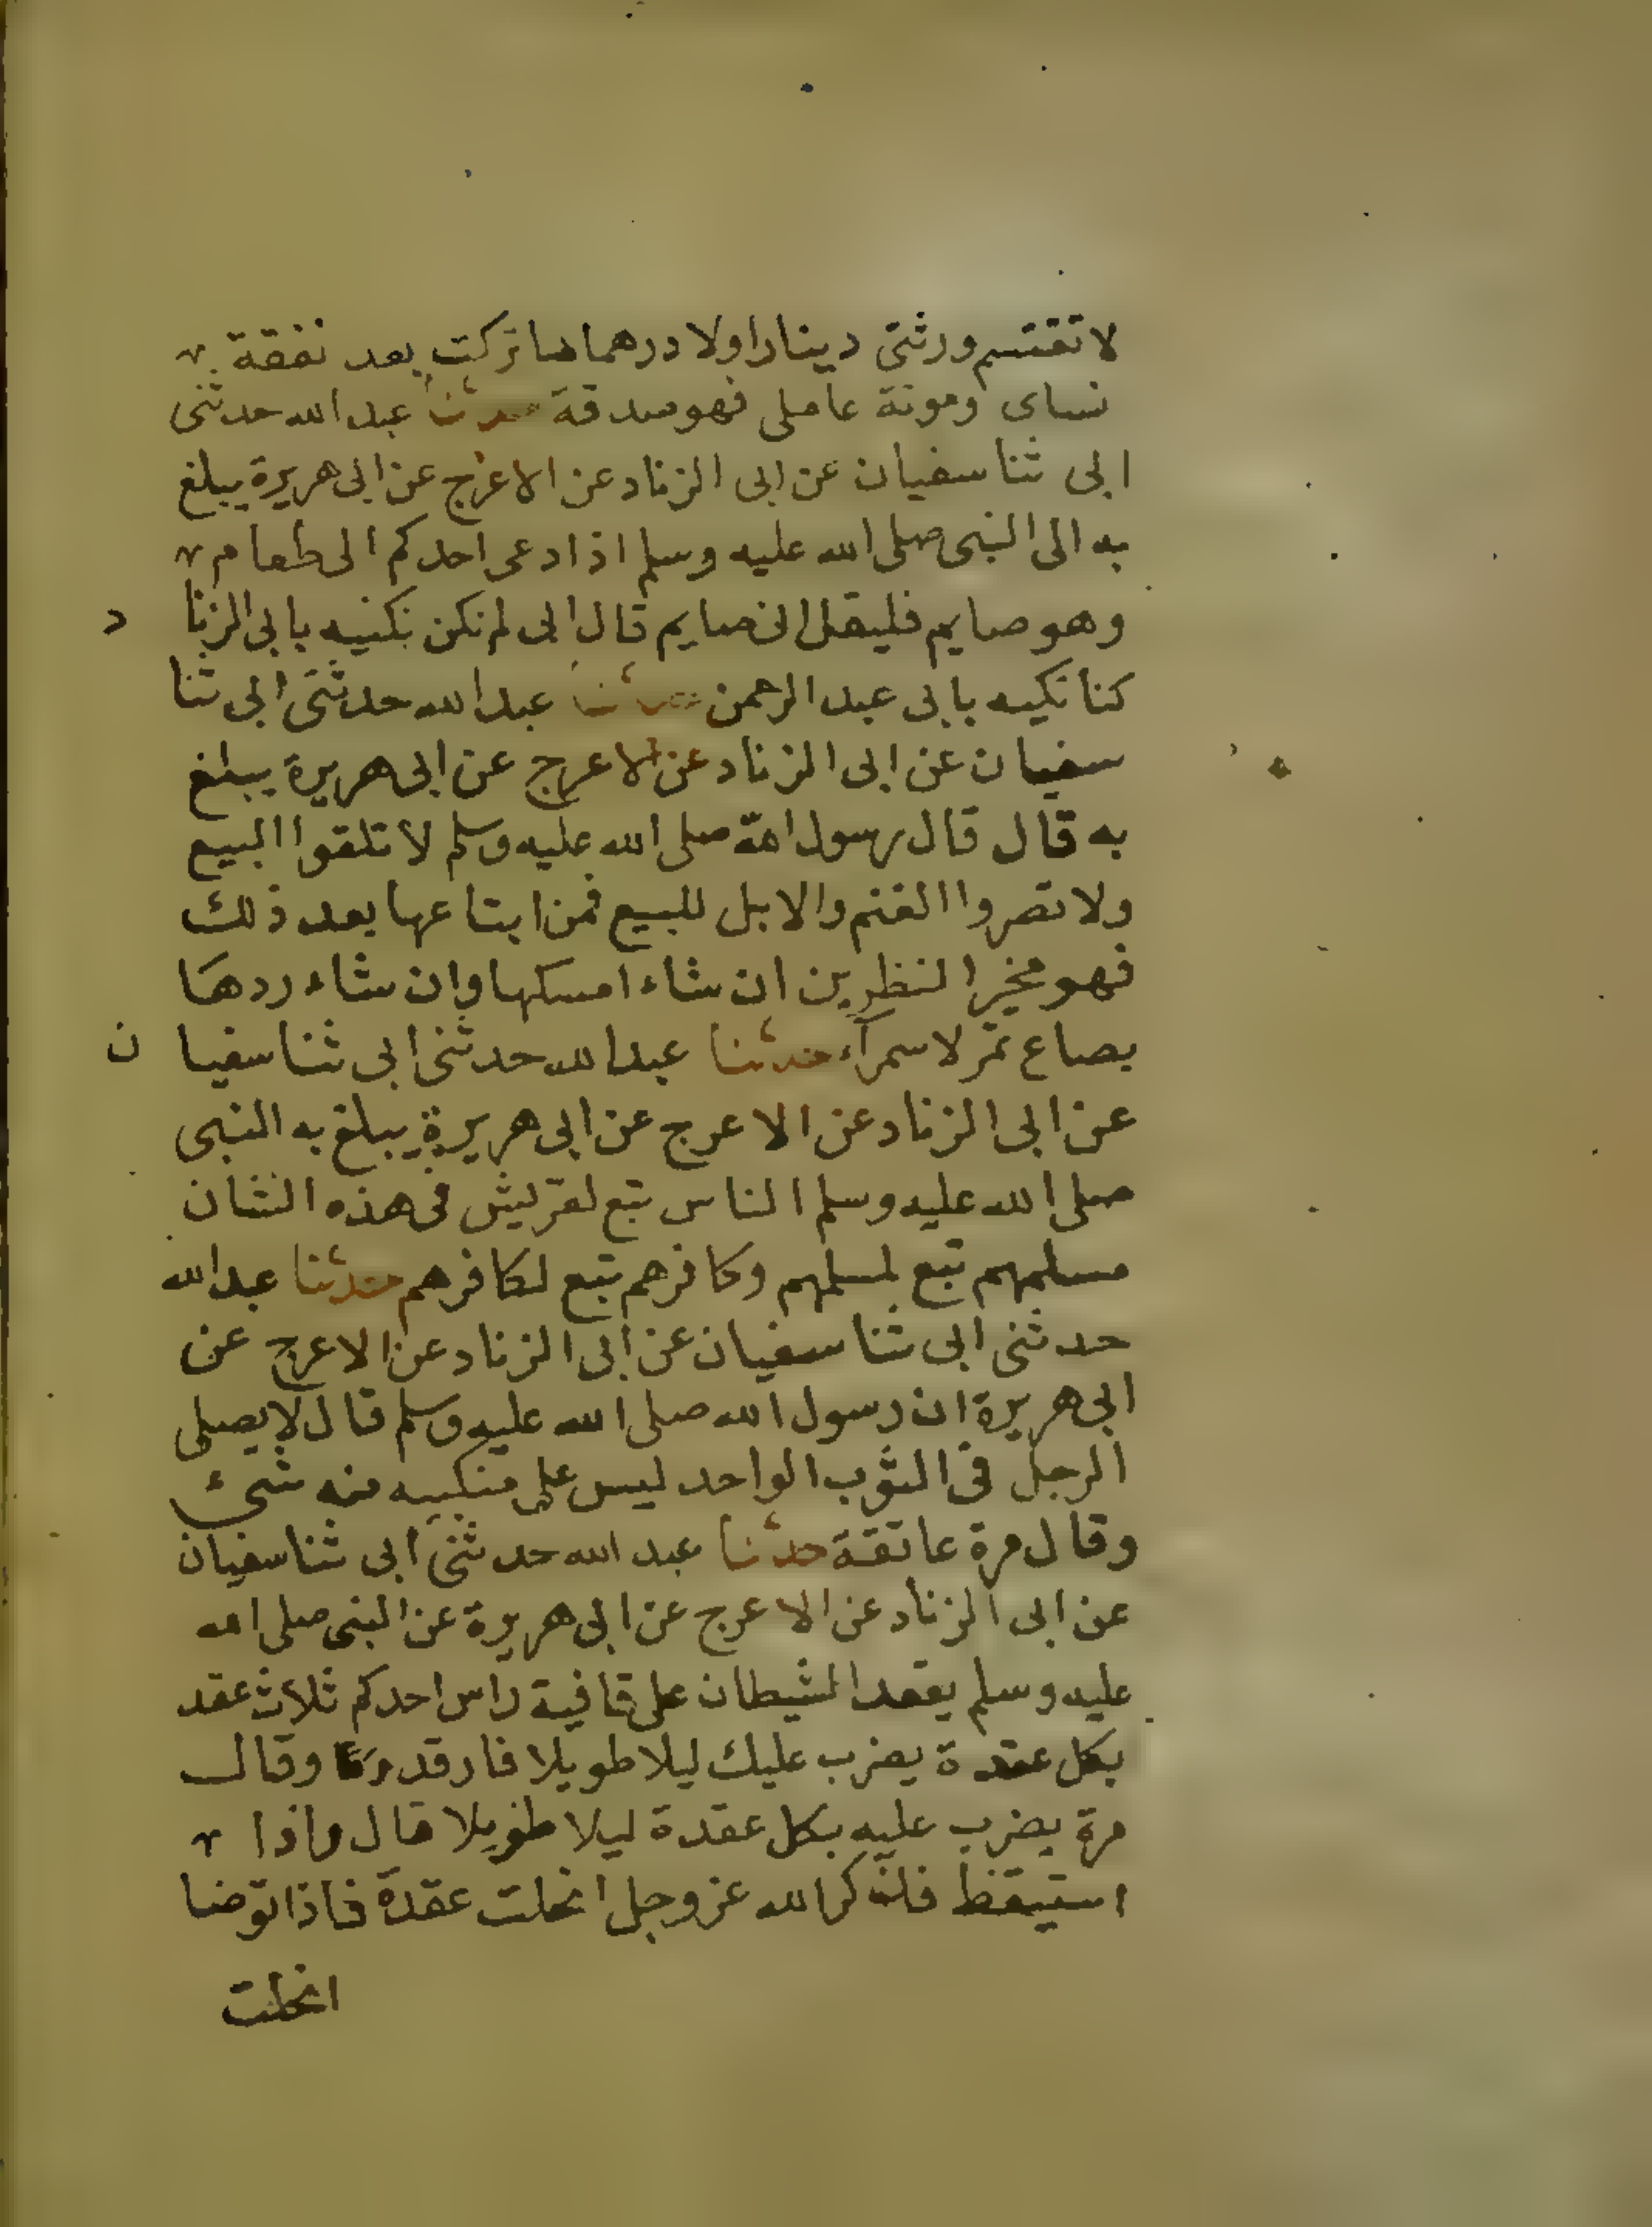 لا تقتسم ورثتى دينارا ولا درهما ما تركت بعد نفقة
نساى ومونة عاملى فهو صدقة حدثنا عبد الله حدثنى
ابى ثنا سفيان عن ابى الزناد عن الاعرج عن ابى هريرة يبلغ
به الى النبى صلى الله عليه وسلم اذا دعى احدكم الى طعام
وهو صايم فليقل انى صايم قال ابى لم نكن نكنيه بابى الزناد
كنا نكيه بابى عبد الرحمن حدثنا عبد الله حدثنى ابى ثنا
سفيان عن ابى الزناد عن الاعرج عن ابى هريرة يبلغ
به قال قال رسول الله صلى الله عليه وسلم لا تلقوا البيع
ولا تصروا الغنم والابل للبيع فمن ابتاعها بعد ذلك
فهو مخير النظرين ان شاء امسكها وان شاء ردها
بصاع تمر لا سمرآء حدثنا عبد الله حدثنى ابى ثنا سفيان
عن ابى الزناد عن الاعرج عن ابى هريرة يبلغ به النبى
صلى الله عليه وسلم الناس تبع لقريش فى هذه الشان
مسلمهم تبع لمسلمهم وكافرهم تبع لكافرهم حدثنا عبد الله
حدثنى ابى ثنا سفيان عن ابى الزناد عن الاعرج عن
ابى هريرة ان رسول الله صلى الله عليه وسلم قال لا يصلى
الرجل فى الثوب الواحد ليس على منكبيه منه شىء
وقال مرة عاتقة حدثنا عبد الله حدثنى ابى ثنا سفيان
عن ابى الزناد عن الاعرج عن ابى هريرة عن النبى صلى الله
عليه وسلم يعقد الشيطان على قافية راس احدكم ثلاث عقد
بكل عقدة يضرب عليك ليلا طويلا فارقد وقال
مرة يضرب عليه بكل عقدة ليلا طويلا قال واذا
استيقظ فذكر الله عز وجل انحلت عقدة فاذا توضا
انحلت